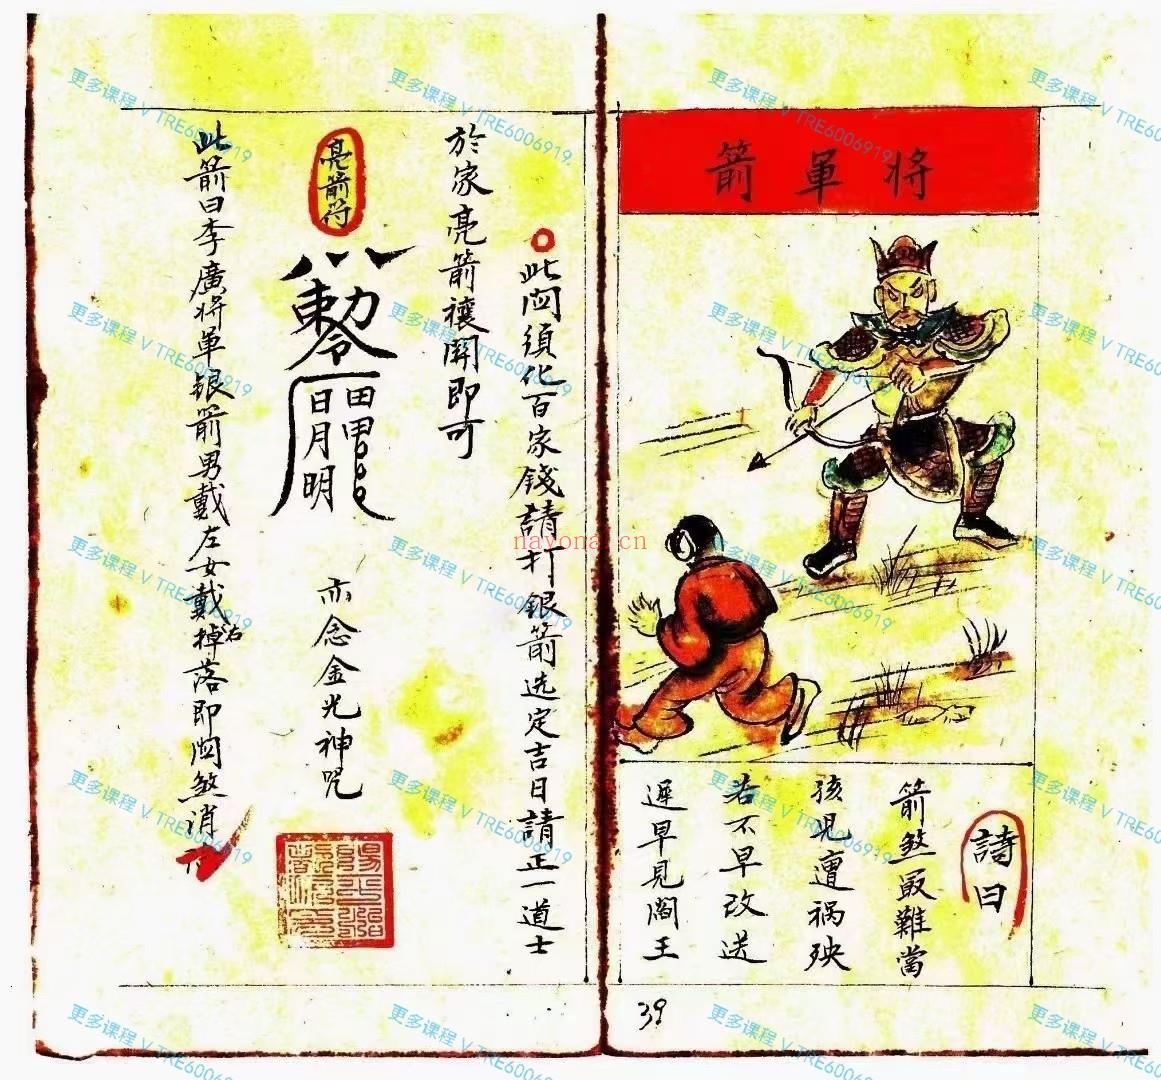 將軍箭
詩曰
箭煞最難當
孩兒遭祸殃
若不早改送
遲早見閻王
39
此関須化百家錢請打銀箭选定吉日請正一道士
於家亮箭禳開即可
亮箭符
敕令
日月明
亦念金光神咒
此箭曰李廣将軍银箭男戴左女戴右掉落即関煞消
nayona.cn
更多课程 V TRE6006919